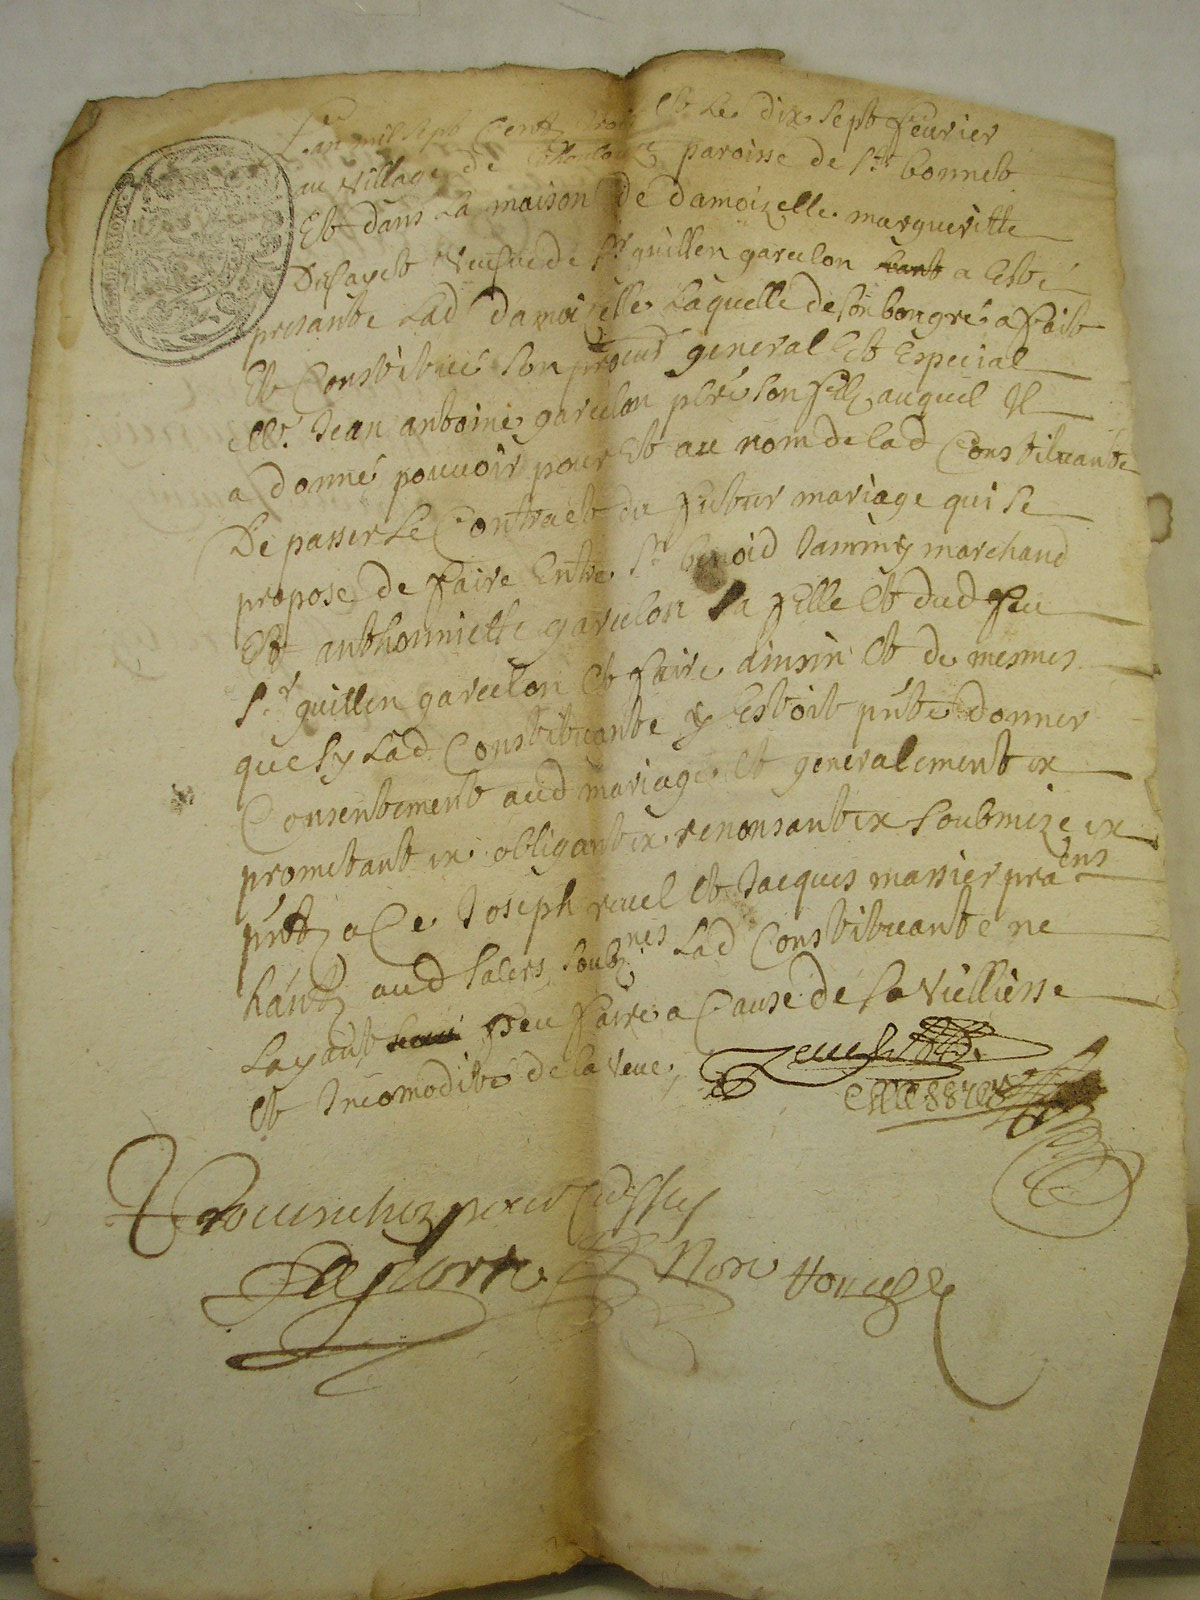 L'an mil sept Centz trois Et Le dix sept feurier
au village de paroisse de St bonnet
Et dans La maison de damoizelle margueritte
Dufayet Veufue de Sr guillen garcelon a Esté
presante Lad damoizelle Laquelle de son bon gré a fait
Et Constitué son procur general Et Especial
Mr Jean antoine garcelon pbre son filz auquel Il
a donné pouuoir pour Et au nom de lad Constituante
De passer Le Contract du futur mariage qui se
propose de faire Entre Sr benoid marchand
Et anthoniette garcelon sa fille Et dud feu
Sr guillen garcelon Et faire ainsin Et de mesmes
que sy Lad Constituante y Estoit pnte donner
Consentement aud mariage Et generalement ex
prometant ex obligant ex renonsant ex soubmize ex
pntz a Ce Joseph reuel Et Jacques massier praens
hantz aud salers soubznes Lad Constituante ne
Layant peu faire a Cause de sa vielliesse
et Incomodité de la veue